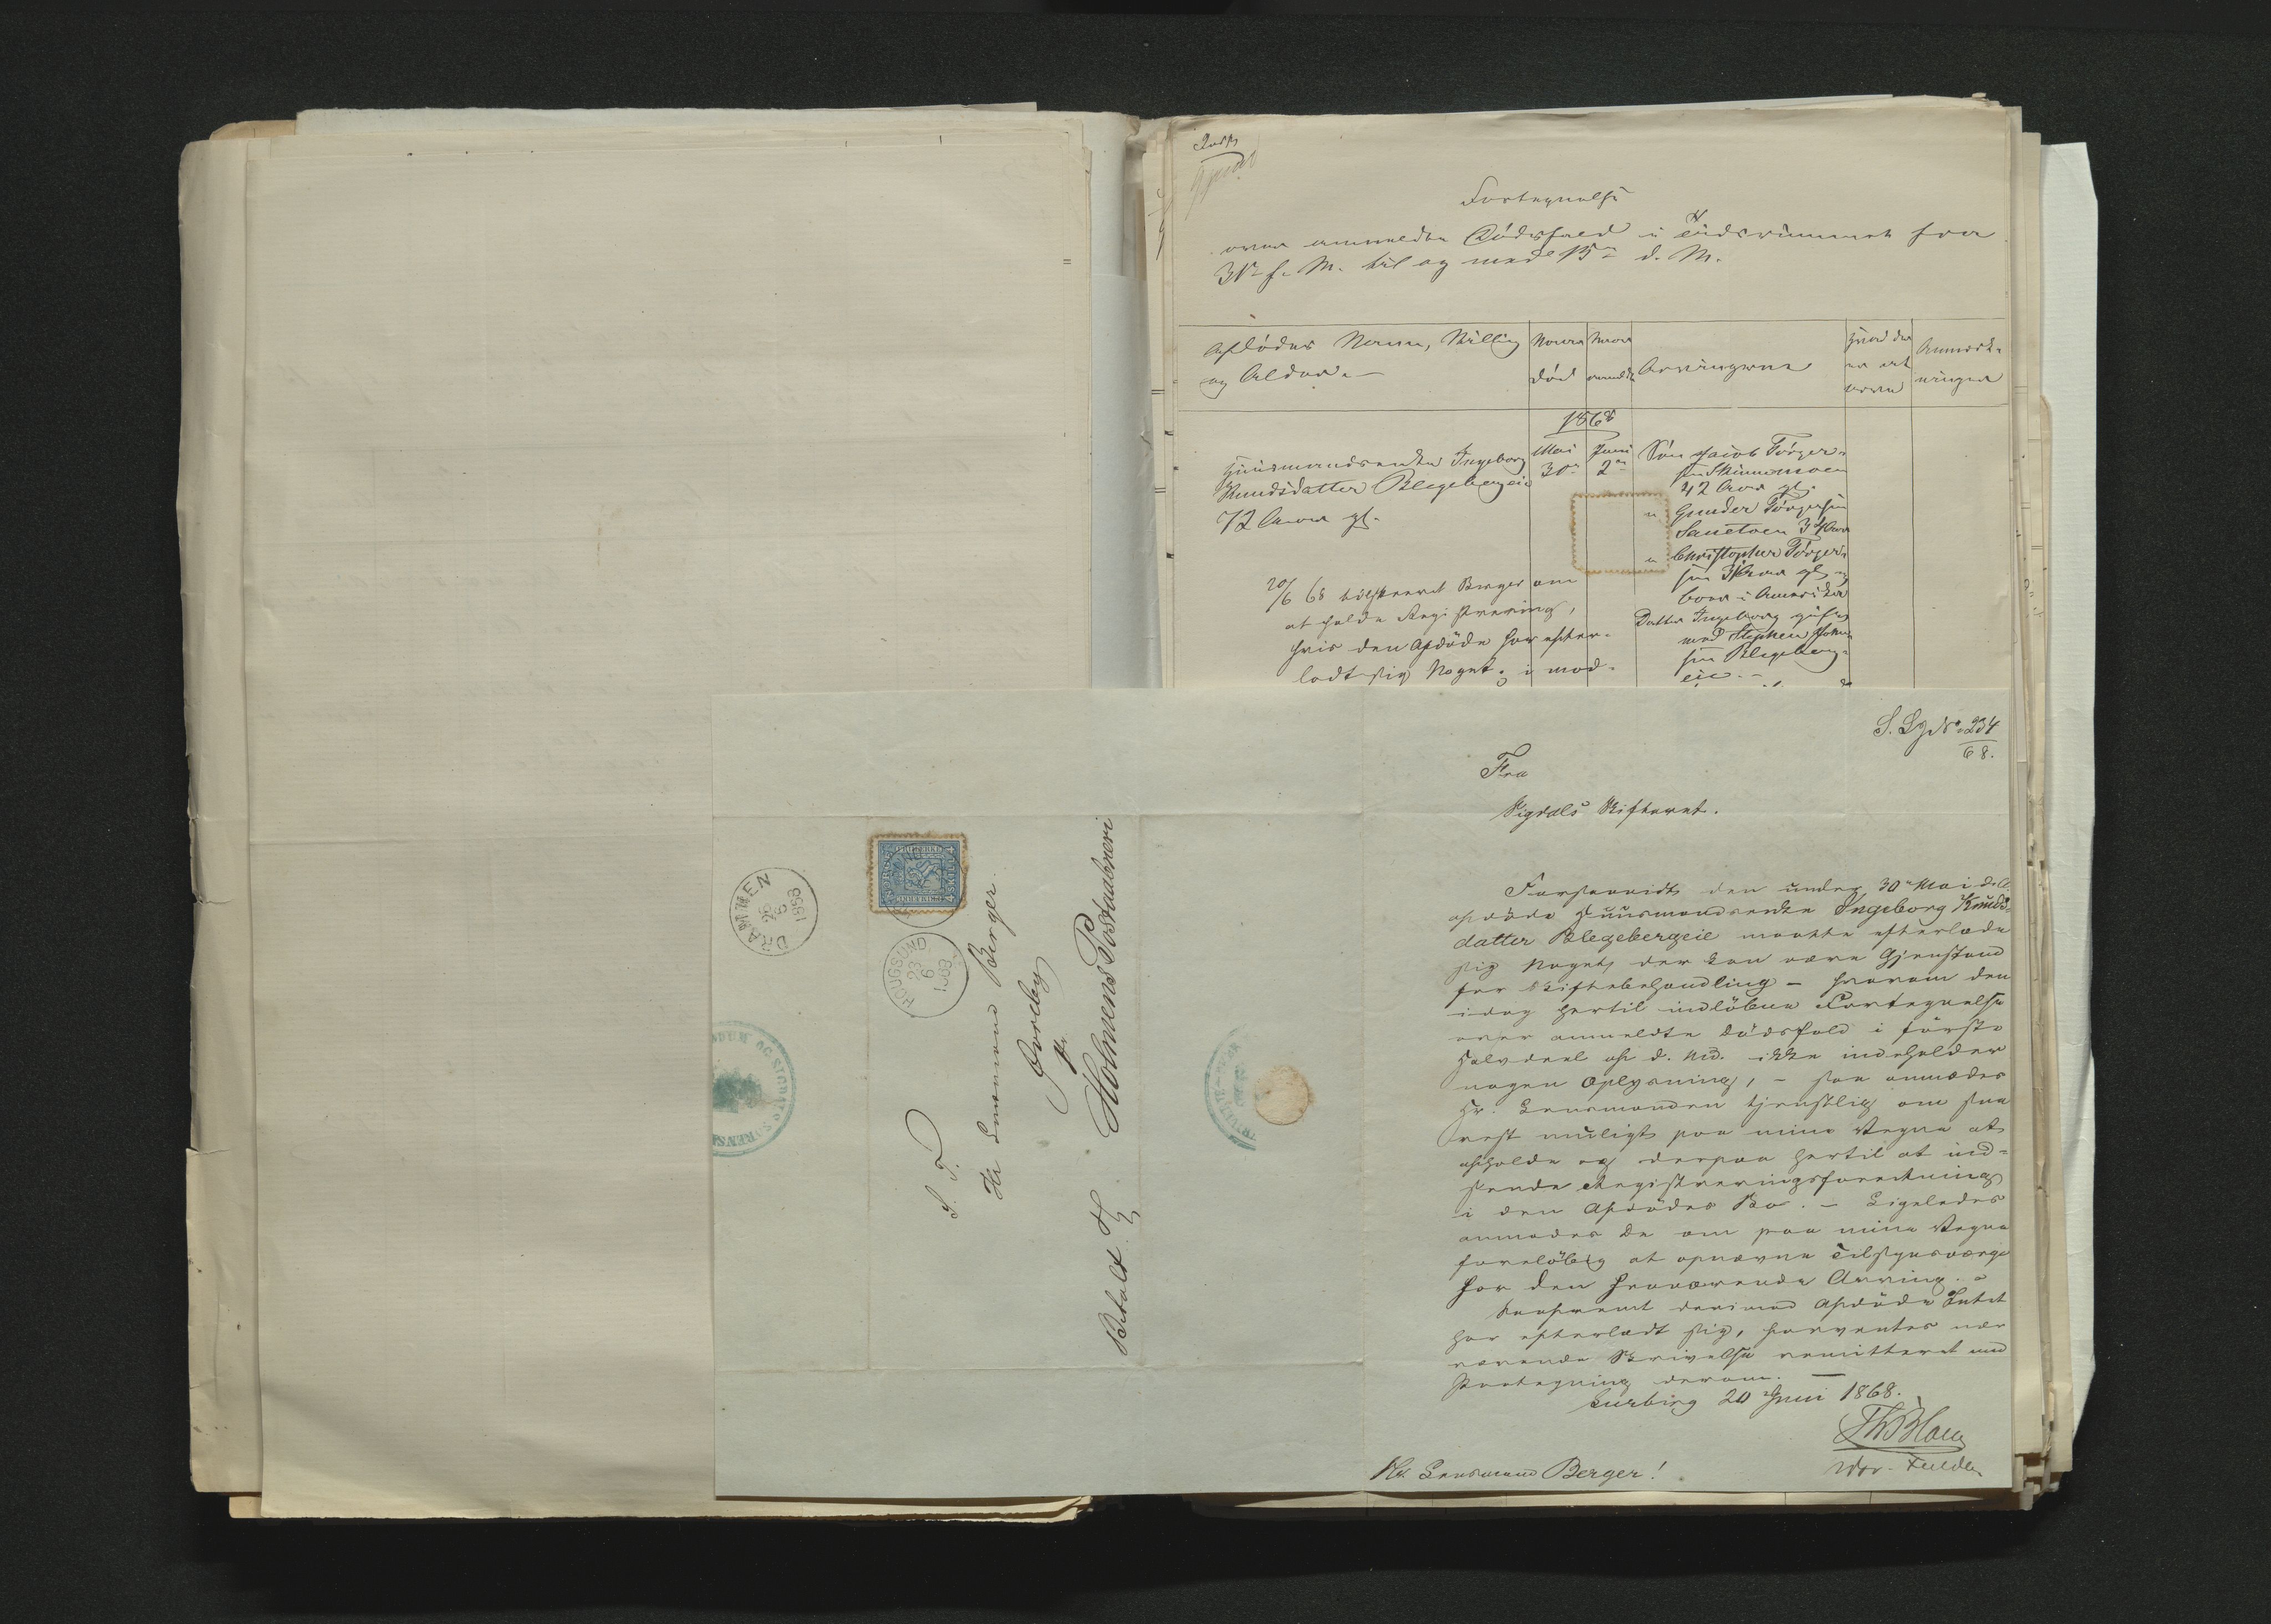 Fortegnelse
over anmeldte Dödsfald i Tidsrummet fra
31te f. M. til og med 15de d. M.
Afdödes Navn, Stilling
og Alder.
Naar
död
Naar
anmeldt
Arvingerne
Hvad der
er at
arve
Anmærk-
ninger
1868
Huusmandsenke Ingeborg
Knudsdatter Blegebergeie
72 Aar gl.
Mai
30te
Juni
2den
Sön Jacob Törger-
sen Skinnemoen
42 Aar gl.
" Gunder Törgersen
34 Aar
" Christopher Törger-
sen 31 Aar gl og
boer i Amerika
Datter Ingeborg gift
med Stephen
sen Blegeberg-
eie.
20/6 68 tilskrevet Berger om
at holde Registrering,
hvis den Afdöde har efter-
ladt sig Noget; i mod-
S. L. No 234
68.
Fra
Sigdals Skifteret.
Forsaavidt den under 30te Mai d. A.
afdöde Huusmandsenke Ingeborg Knuds-
datter Blegebergeie maatte efterlade
sig Noget, der kan være Gjenstand
for Skiftebehandling – hvorom den
idag hertil indlöbne Fortegnelse
over anmeldte Dödsfald i förste
Halvdeel af d. Md. ikke indeholder
nogen Oplysning, – saa anmodes
Hr. Lensmanden tjenstlig om saa
vidt muligt paa mine Vegne at
afholde og derpaa hertil at ind-
sende Registreringsforretning
i den Afdödes Bo. – Ligeledes
anmodes De om paa mine Vegne
forelöbig at opnævne Tilsynsværge
for den fraværende Arving.
Saafremt derimod Afdöde Intet
har efterladt sig, forventes nær-
værende Skrivelse remitteret med
Paategning derom. –
20 Juni 1868.
Th Blom
Hr Lensmand Berger!
S. T.
Hr Lensmand Berger
pr
Holmens Postaabneri
Betalt
DRAMMEN
1868
HOUGSUND
23
6
1868